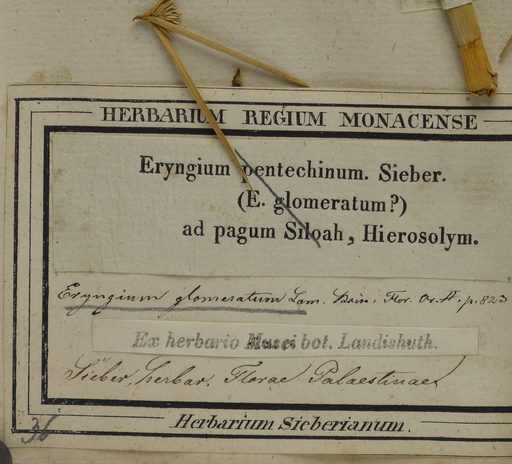 HERBARIUM REGIUM MONACENSE
Eryngium pentechinum. Sieber.
(E. glomeratum?)
ad pagum Siloah, Hierosolym.
Eryngium glomeratum Lam. Boiss. Flor. Or. II. p. 823
Ex herbario Musei bot. Landishuth.
Sieber, herbar. Florae Palaestinae
Herbarium Sieberianum.
36